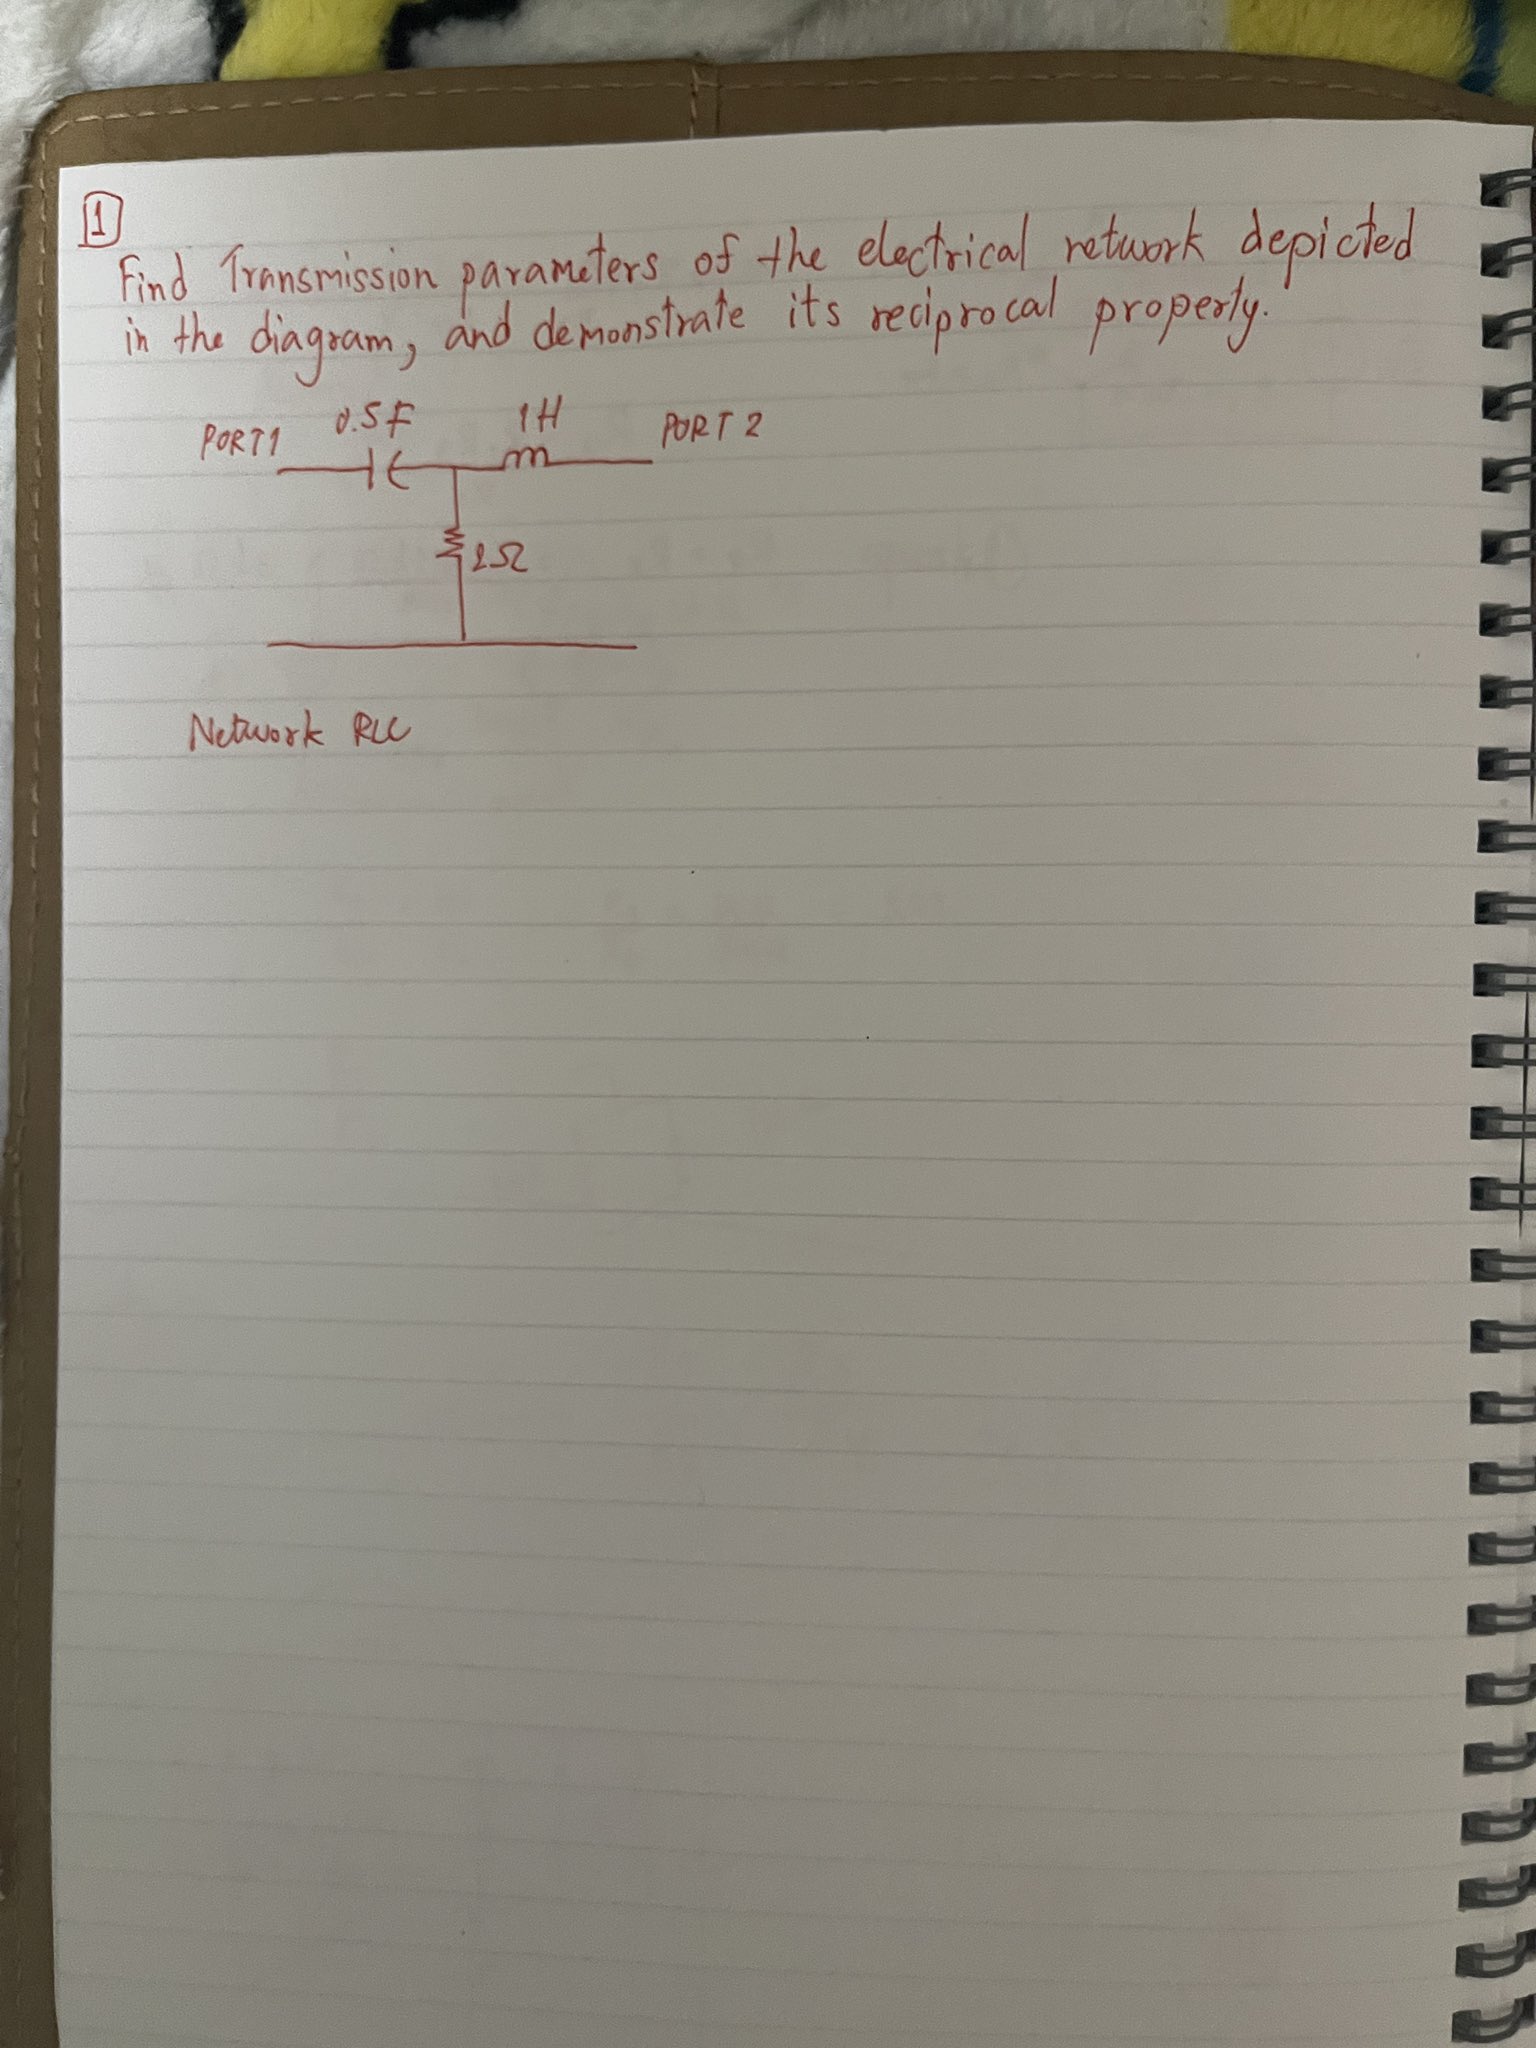 1
Find Transmission parameters of the electrical network depicted
in the diagram, and demonstrate its reciprocal property.
PORT1 0.5F 1H PORT 2
2Ω
Network RLC